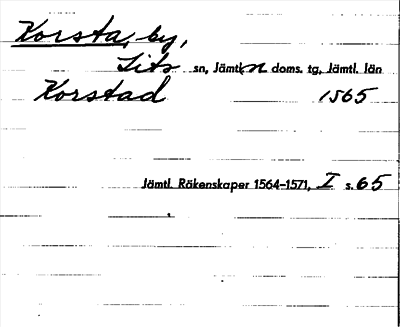 Korsta, by,
Lits sn, Jämtl. n doms. tg, Jämtl. län
Korstad 1565
Jämtl. Räkenskaper 1564-1571, I s. 65